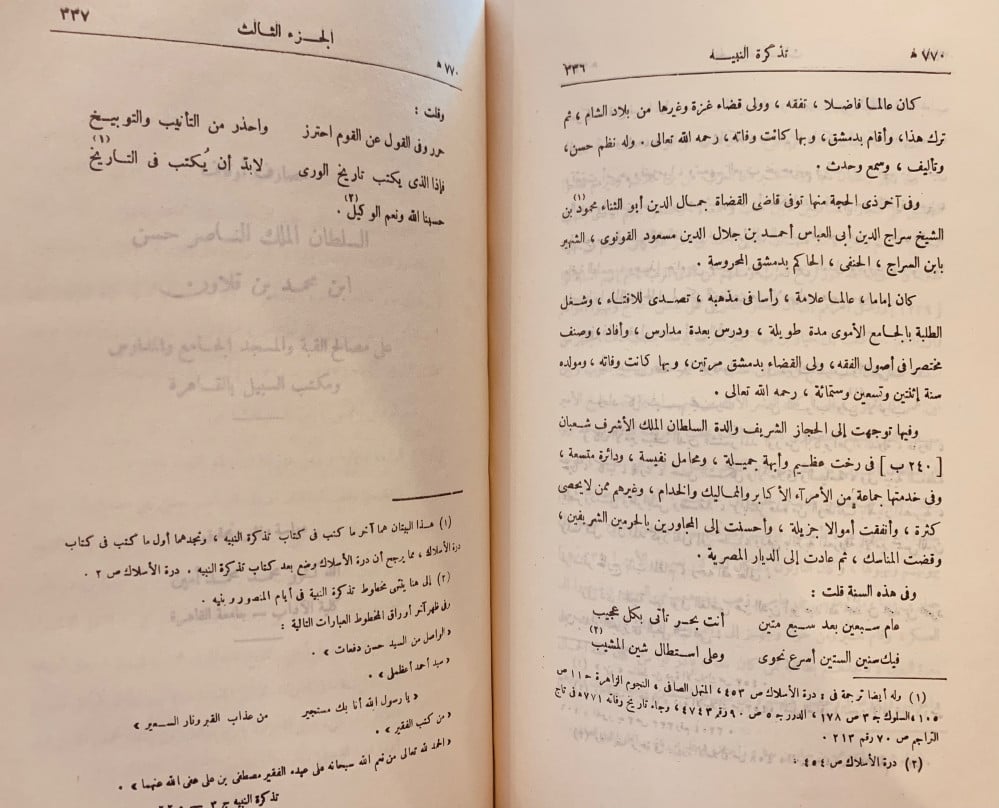 ٧٧٠ هـ تذكرة النبيه ٣٣٦
كان عالما فاضلا ، تفقه ، وولى قضاء غزة وغيرها من بلاد الشام ، ثم
ترك هذا، وأقام بدمشق، وبها كانت وفاته ، رحمه الله تعالى . وله نظم حسن،
وتآليف ، وسمع وحدث .
وفى آخر ذى الحجة منها توفى قاضى القضاة جمال الدين أبو الثناء محمود(١) بن
الشيخ سراج الدين أبى العباس أحمد بن جلال الدين مسعود القونوى ، الشهير
بابن السراج ، الحنفى ، الحاكم بدمشق المحروسة .
كان إماما ، عالما علامة ، رأسا فى مذهبه ، تصدى للافتاء ، وشغل
الطلبة بالجامع الأموى مدة طويلة ، ودرس بعدة مدارس ، وأفاد ، وصنف
مختصرا فى أصول الفقه، ولى القضاء بدمشق مرتين، وبها كانت وفاته ، ومولده
سنة إثنتين وتسعين وستمائة ، رحمه الله تعالى .
وفيها توجهت إلى الحجاز الشريف والدة السلطان الملك الأشرف شعبان
[ ٢٤٠ ب ] فى رخت عظيم وأبهة جميلة ، ومحامل نفيسة ، ودائرة متسعة ،
وفى خدمتها جماعة من الأمرآء الأكابر والمماليك والخدام ، وغيرهم ممن لا يحصى
كثرة ، وأنفقت أموالا جزيلة ، وأحسنت إلى المجاورين بالحرمين الشريفين ،
وقضت المناسك ، ثم عادت إلى الديار المصرية .
وفى هذه السنة قلت :
عام سبعين بعد سبع متين أنت بحر تأتى بكل عجيب
فيك سنين الستين أسرع نحوى وعلى استطال شين المشيب(٢)
(١) وله أيضا ترجمة فى : درة الأسلاك ص ٤٥٣ ، المنهل الصافى ، النجوم الزاهرة حـ ١١ ص
١٠٥ ، السلوك حـ ٣ ص ١٧٨ ، الدرر حـ ٥ ص ٩٠ رقم ٤٧٤٣ ، وجاء تاريخ وفاته ٧٧١هـ فى تاج
التراجم ص ٧٠ رقم ٢١٣ .
(٢) درة الأسلاك ص ٤٥٤ .
٧٧٠ هـ الجزء الثالث ٣٣٧
وقلت :
حرر وفى القول عن القوم احترز واحذر من التأنيب والتوبيخ
فإذا الذى يكتب تاريخ الورى لابد أن يُكتب فى التاريخ(١)
حسبنا الله ونعم الوكيل(٢) .
(١) هذا البيتان هما آخر ما كتب فى كتاب تذكرة النبيه ، ونجدهما أول ما كتب فى كتاب
درة الأسلاك ، مما يرجح أن درة الأسلاك وضع بعد كتاب تذكرة النبيه . درة الأسلاك ص ٢ .
(٢) إلى هنا ينتهى مخطوط تذكرة النبية فى أيام المنصور وبنيه .
وفى ظهر آخر أوراق المخطوط العبارات التالية :
« الواصل من السيد حسن دفعات » .
« سيد أحمد أعظملى » .
« يا رسول الله أنا بك مستجير من عذاب القبر ونار السعير »
« من كتب الفقير » .
« الحمد لله تعالى من نعم الله سبحانه على عبده الفقير مصطفى بن على عفى الله عنهما » .
تذكرة النبيه جـ ٣